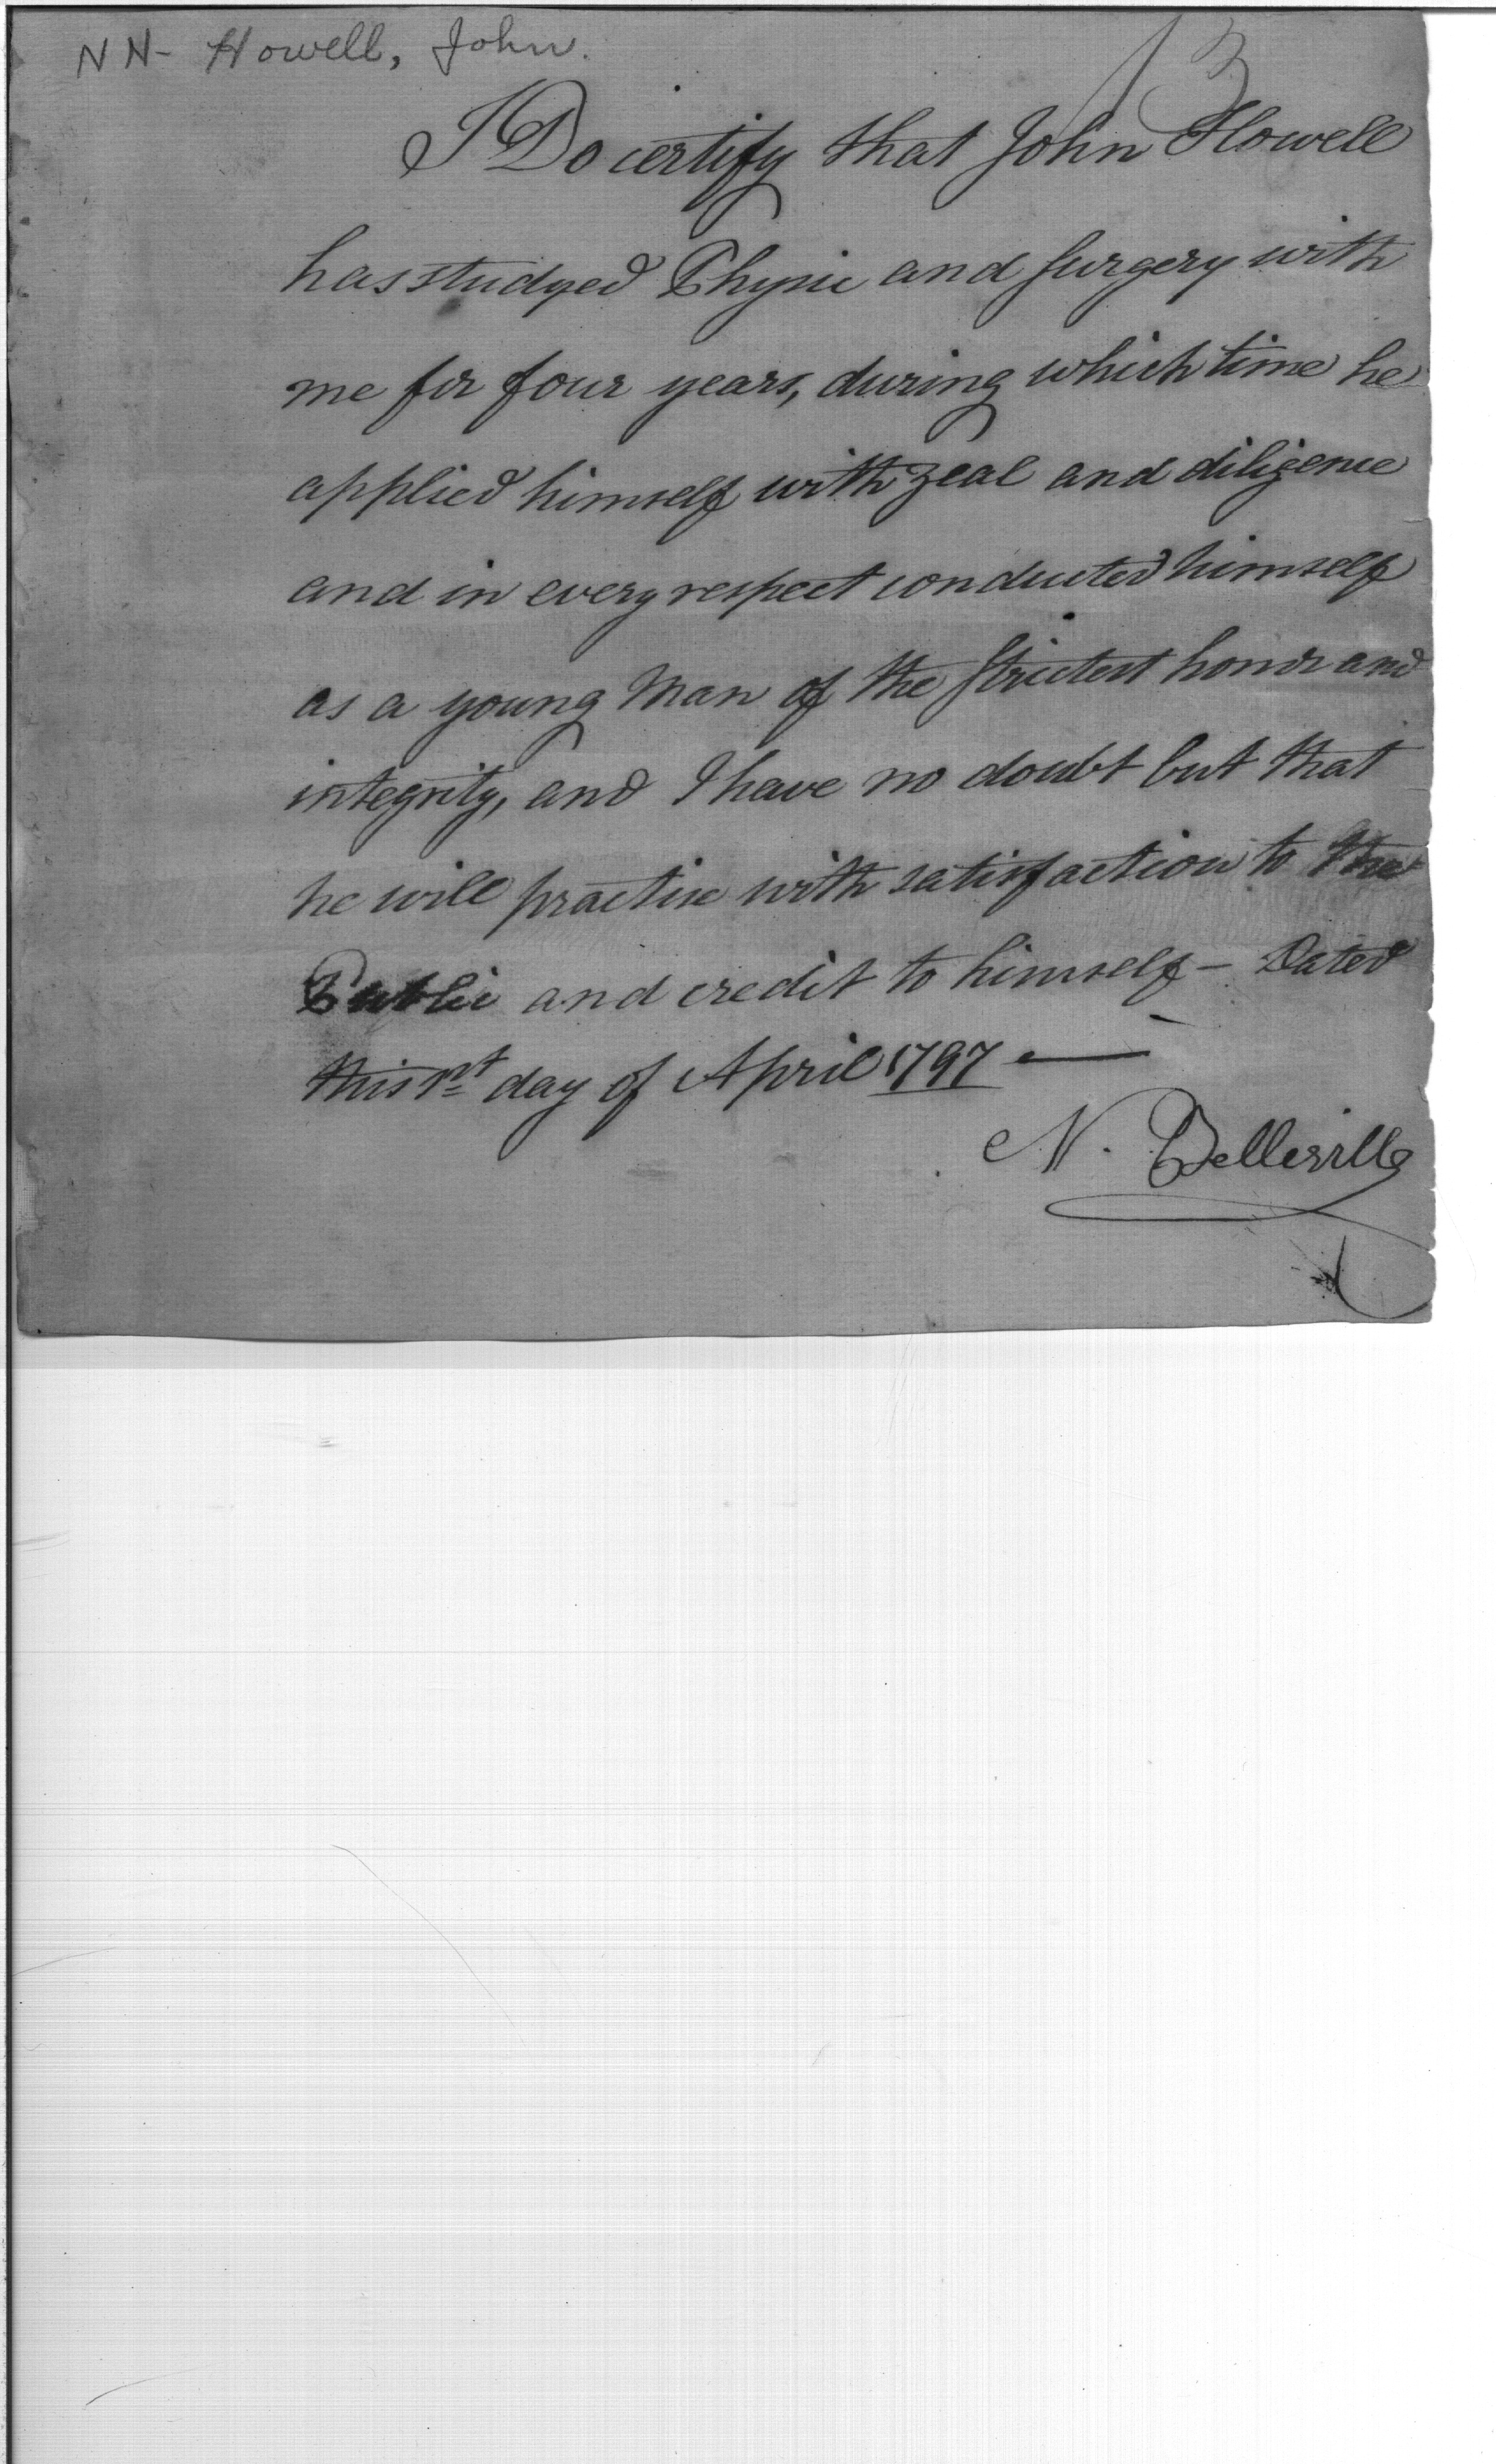 NN- Howell, John.
13
I Do certify that John Howell
has studyed Physic and surgery with
me for four years, during which time he
applied himself with zeal and diligence
and in every respect conducted himself
as a young Man of the strictest honor and
integrity, and I have no doubt but that
he will practise with satisfaction to the
Public and credit to himself – Dated
this 1st day of April 1797 —
N. Belleville